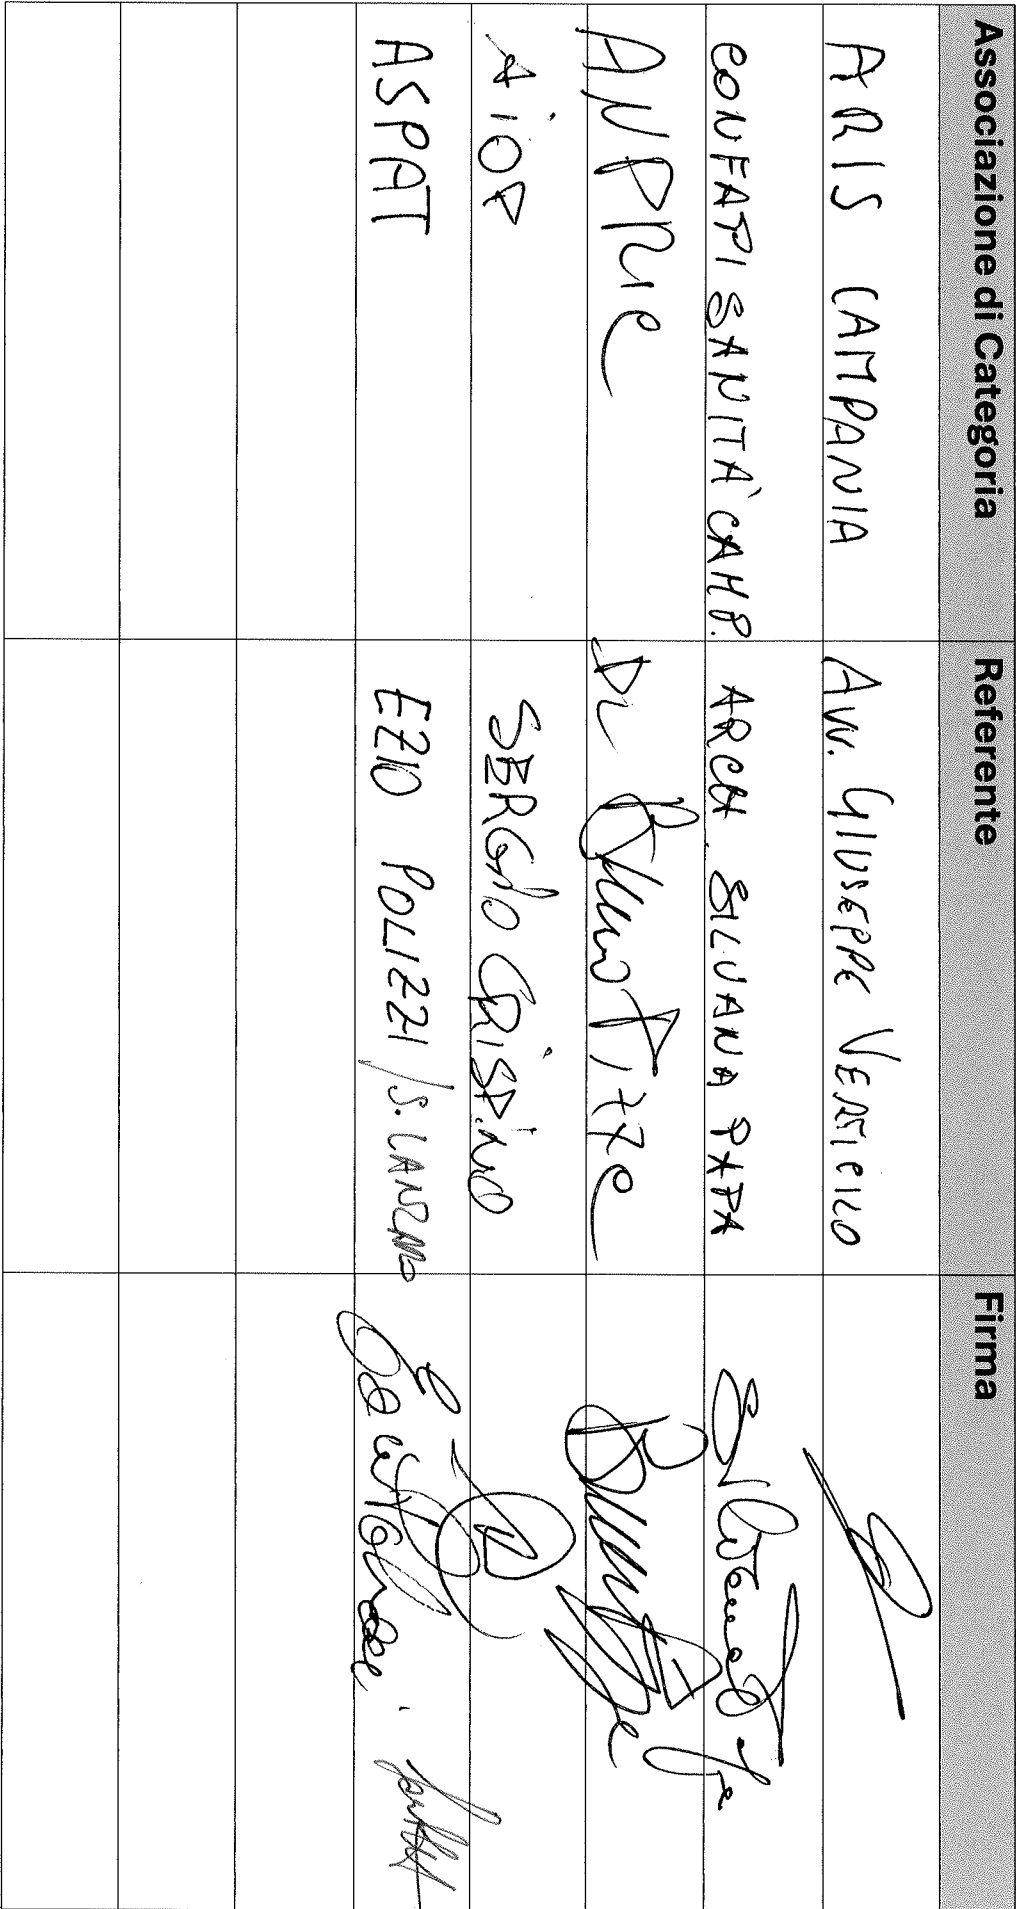 Associazione di Categoria Referente Firma
ARIS CAMPANIA Avv. GIUSEPPE VERTICILO
CONFAPI SANITÀ CAMP. ARCH. SILVANA PAPA
ANPRIC Dr Bruno Pizza
AIOP SERGIO CRISPINO
ASPAT EZIO POLIZZI / S. LANZANO